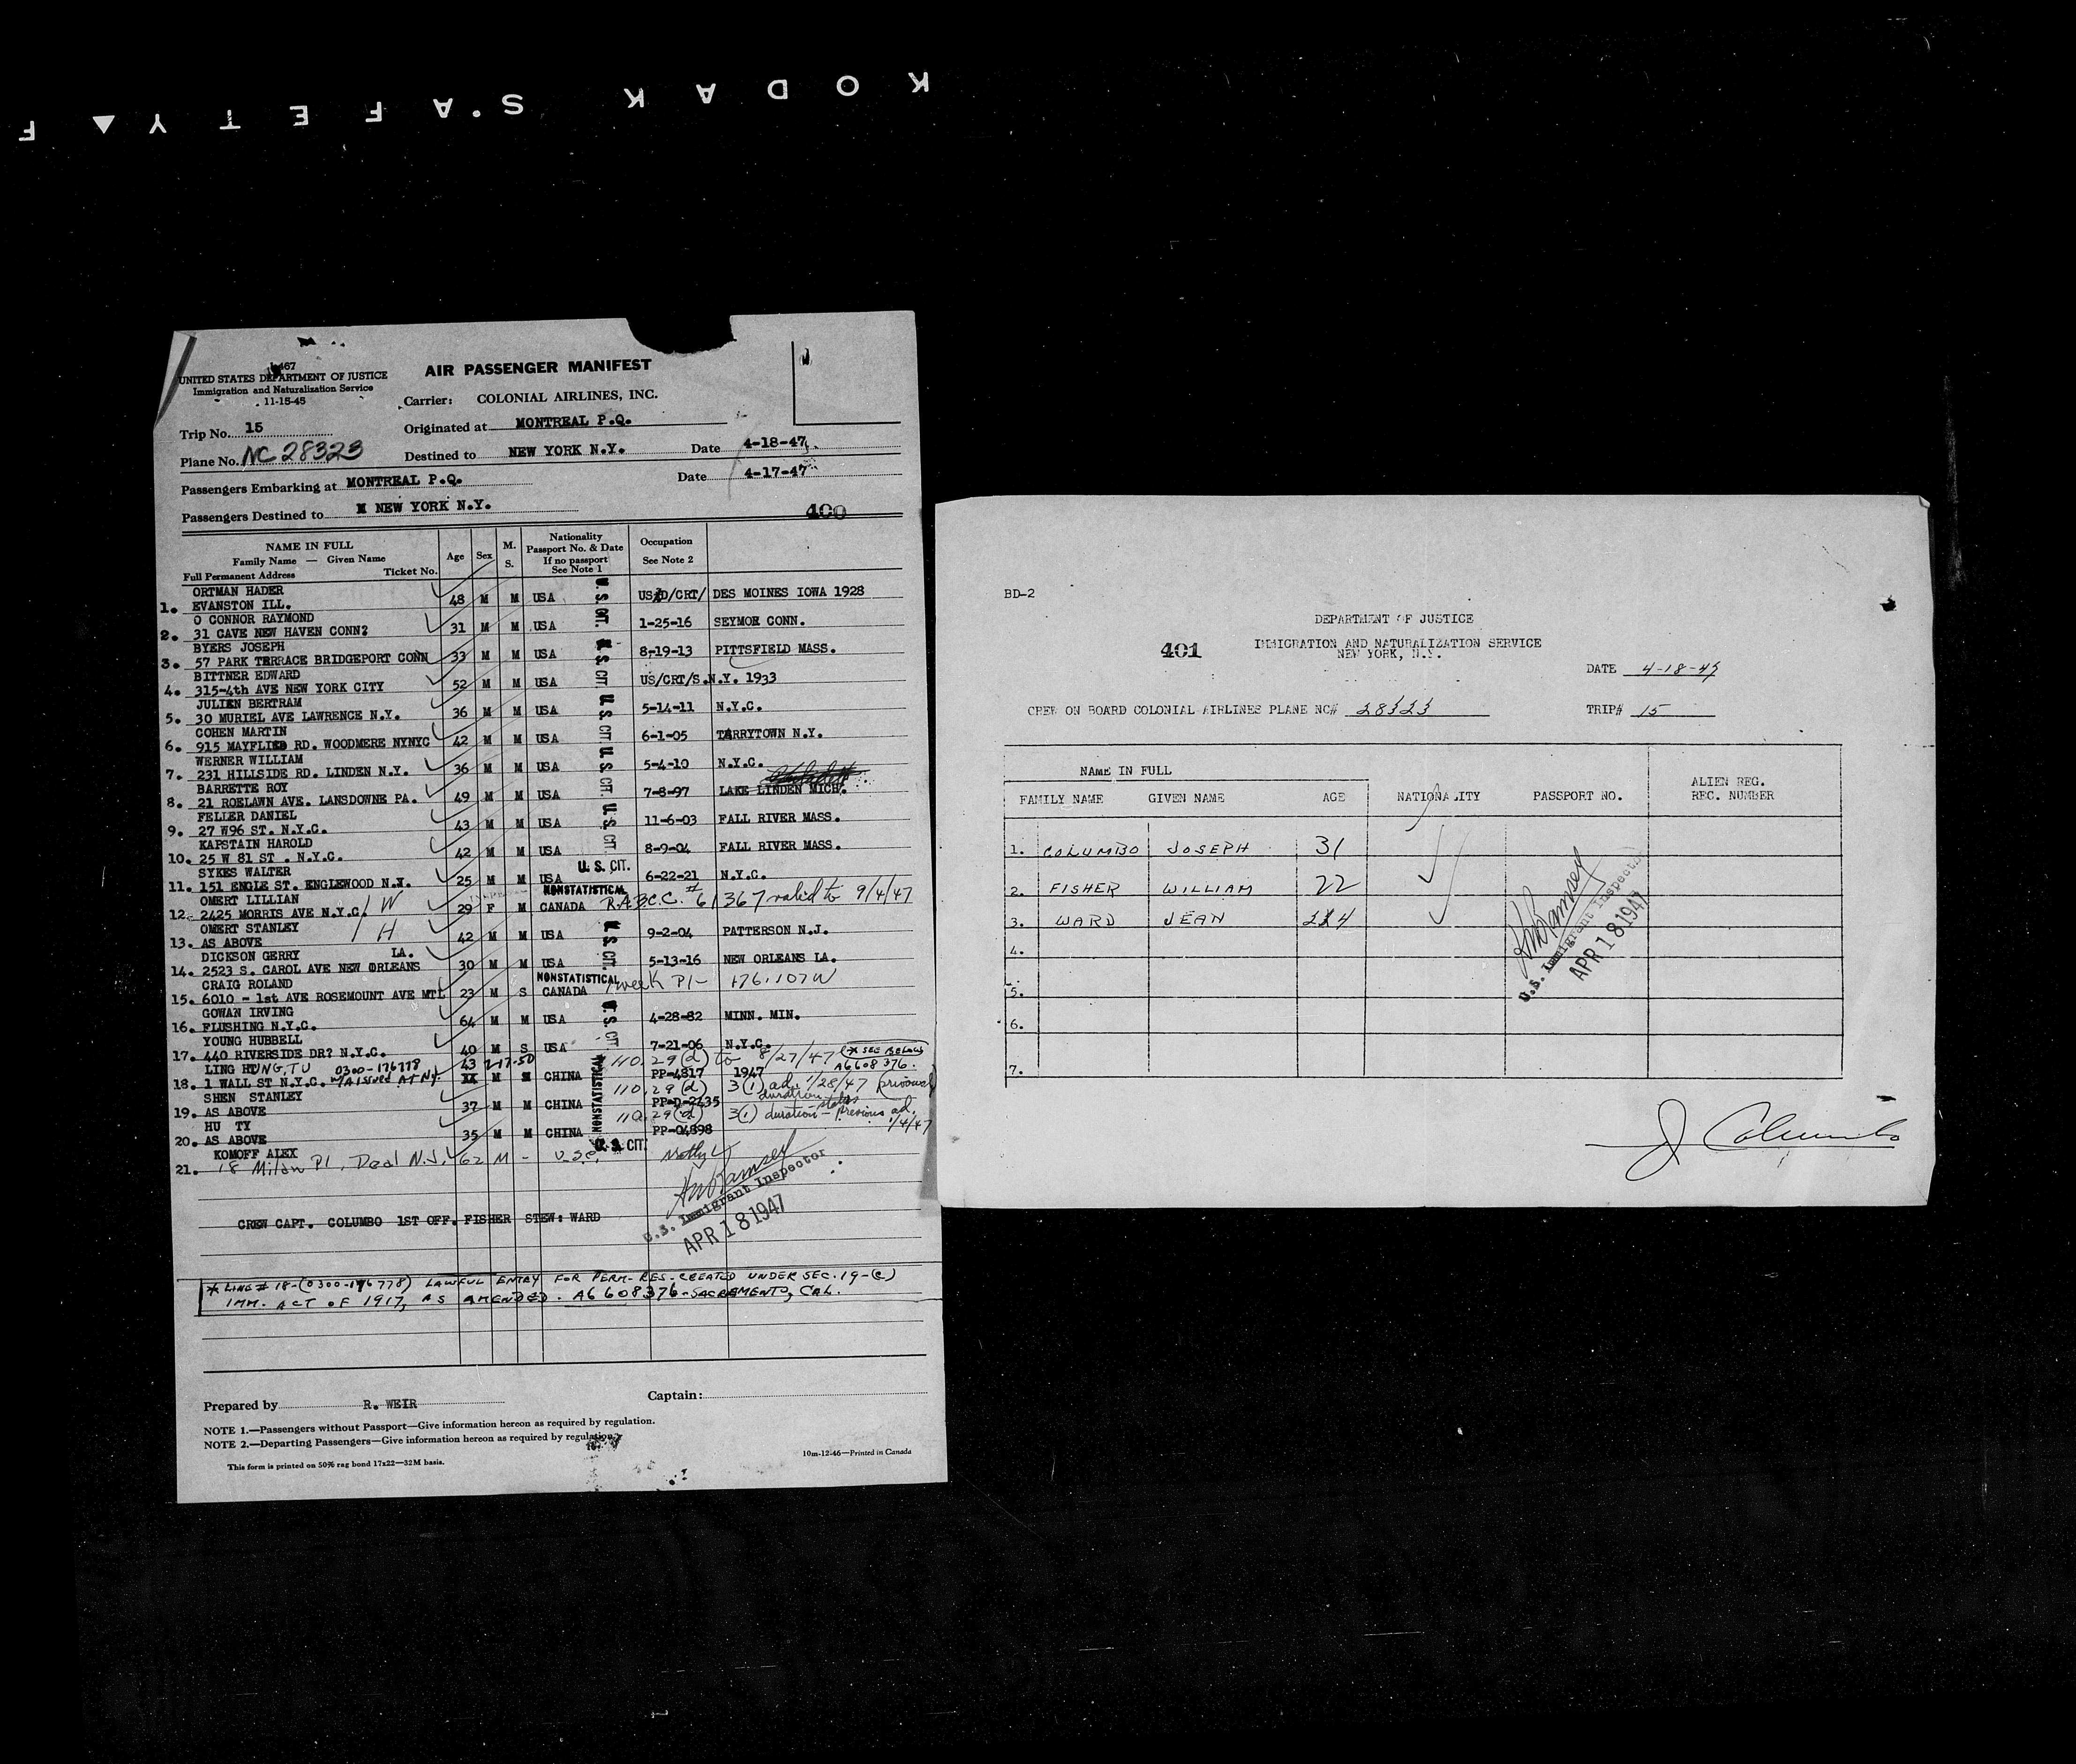 KODAK SAFETY F
I-467
UNITED STATES DEPARTMENT OF JUSTICE
Immigration and Naturalization Service
11-15-45
AIR PASSENGER MANIFEST
Carrier: COLONIAL AIRLINES, INC.
Trip No. 15
Originated at MONTREAL P.Q.
Plane No. NC 28323
Destined to NEW YORK N.Y. Date 4-18-47
Passengers Embarking at MONTREAL P.Q. Date 4-17-47
Passengers Destined to NEW YORK N.Y. 400
NAME IN FULL
Family Name — Given Name
Full Permanent Address Ticket No.
Age
Sex
M. S.
Nationality
Passport No. & Date
If no passport
See Note 1
Occupation
See Note 2
ORTMAN HADER
1. EVANSTON ILL. 48 M M USA U.S. CIT. DES MOINES IOWA 1928
O CONNOR RAYMOND
2. 31 CAVE NEW HAVEN CONN? 31 M M USA 1-25-16 SEYMOR CONN.
BYERS JOSEPH
3. 57 PARK TERRACE BRIDGEPORT CONN 33 M M USA U.S. CIT. 8-19-13 PITTSFIELD MASS.
BITTNER EDWARD
4. 315-4th AVE NEW YORK CITY 52 M M USA US/CRT/S.N.Y. 1933
JULIEN BERTRAM
5. 30 MURIEL AVE LAWRENCE N.Y. 36 M M USA U.S. CIT. 5-14-11 N.Y.C.
COHEN MARTIN
6. 915 MAYFLIED RD. WOODMERE NYNYC 42 M M USA 6-1-05 TARRYTOWN N.Y.
WERNER WILLIAM
7. 231 HILLSIDE RD. LINDEN N.Y. 36 M M USA U.S. CIT. 5-4-10 N.Y.C.
BARRETTE ROY
8. 21 ROELAWN AVE. LANSDOWNE PA. 49 M M USA 7-8-97 LAKE LINDEN MICH.
FELLER DANIEL
9. 27 W96 ST. N.Y.C. 43 M M USA U.S. CIT. 11-6-03 FALL RIVER MASS.
KAPSTAIN HAROLD
10. 25 W 81 ST . N.Y.C. 42 M M USA 8-9-04 FALL RIVER MASS.
SYKES WALTER U. S. CIT.
11. 151 ENGLE ST. ENGLEWOOD N.Y. 25 M M USA 6-22-21 N.Y.C.
OMERT LILLIAN W NONSTATISTICAL
12. 2425 MORRIS AVE N.Y.C. 29 F M CANADA R.A.B.C.C. # 61367 valid to 9/4/47
OMERT STANLEY H
13. AS ABOVE 42 M M USA U.S. CIT. 9-2-04 PATTERSON N.J.
DICKSON GERRY LA.
14. 2523 S. CAROL AVE NEW ORLEANS 30 M M USA 5-13-16 NEW ORLEANS LA.
CRAIG ROLAND NONSTATISTICAL
15. 6010 - 1st AVE ROSEMOUNT AVE MTL 23 M S CANADA week P1- 176.107W
GOWAN IRVING
16. FLUSHING N.Y.C. 64 M M USA U.S. CIT. 4-28-82 MINN. MIN.
YOUNG HUBBELL
17. 440 RIVERSIDE DR? N.Y.C. 40 M S USA 7-21-06 N.Y.C.
LING HUNG, TU 0300-176778 43 7-17-50 110.29(d) to 8/27/47 (* SEE BELOW A6608376.
18. 1 WALL ST N.Y.C. M M CHINA NONSTATISTICAL PP-4817 1947
SHEN STANLEY 110.29(d) 3(1) ad. 1/28/47
19. AS ABOVE 37 M M CHINA PP-D-2435 duration status
HU TY 110.29(d) 3(1) duration - previous ad. 1/4/47
20. AS ABOVE 35 M M CHINA PP-04898
KOMOFF ALEX U.S. CIT.
21. 18 Milan Pl, Deal N.J. 62 M - U.S.C.
U.S. Immigrant Inspector
APR 18 1947
CREW CAPT. COLUMBO 1ST OFF. FISHER STEW: WARD
* LINE # 18-(0300-176778) LAWFUL ENTRY FOR PERM-RES-CREATED UNDER SEC. 19-(c)
IMM. ACT OF 1917, AS AMENDED. A6608376-SACRAMENTO, CAL.
Prepared by R. WEIR
Captain:
NOTE 1.—Passengers without Passport—Give information hereon as required by regulation.
NOTE 2.—Departing Passengers—Give information hereon as required by regulation.
This form is printed on 50% rag bond 17x22—32M basis.
10m-12-46—Printed in Canada
BD-2
DEPARTMENT OF JUSTICE
401 IMMIGRATION AND NATURALIZATION SERVICE
NEW YORK, N.Y.
DATE 4-18-47
CREW ON BOARD COLONIAL AIRLINES PLANE NC# 28323 TRIP# 15
NAME IN FULL
FAMILY NAME GIVEN NAME AGE NATIONALITY PASSPORT NO. ALIEN REG. REC. NUMBER
1. COLUMBO JOSEPH 31
2. FISHER WILLIAM 22
3. WARD JEAN 24
4.
5.
6.
7.
U.S. Immigrant Inspector
APR 18 1947
J Columbo